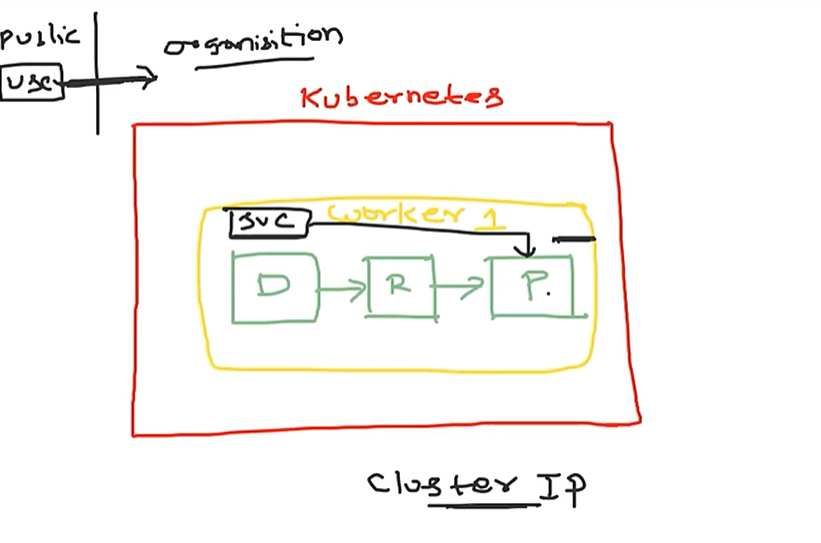 Public
organisition
usc
Kubernetes
svc
worker 1
D
R
P.
Cluster IP